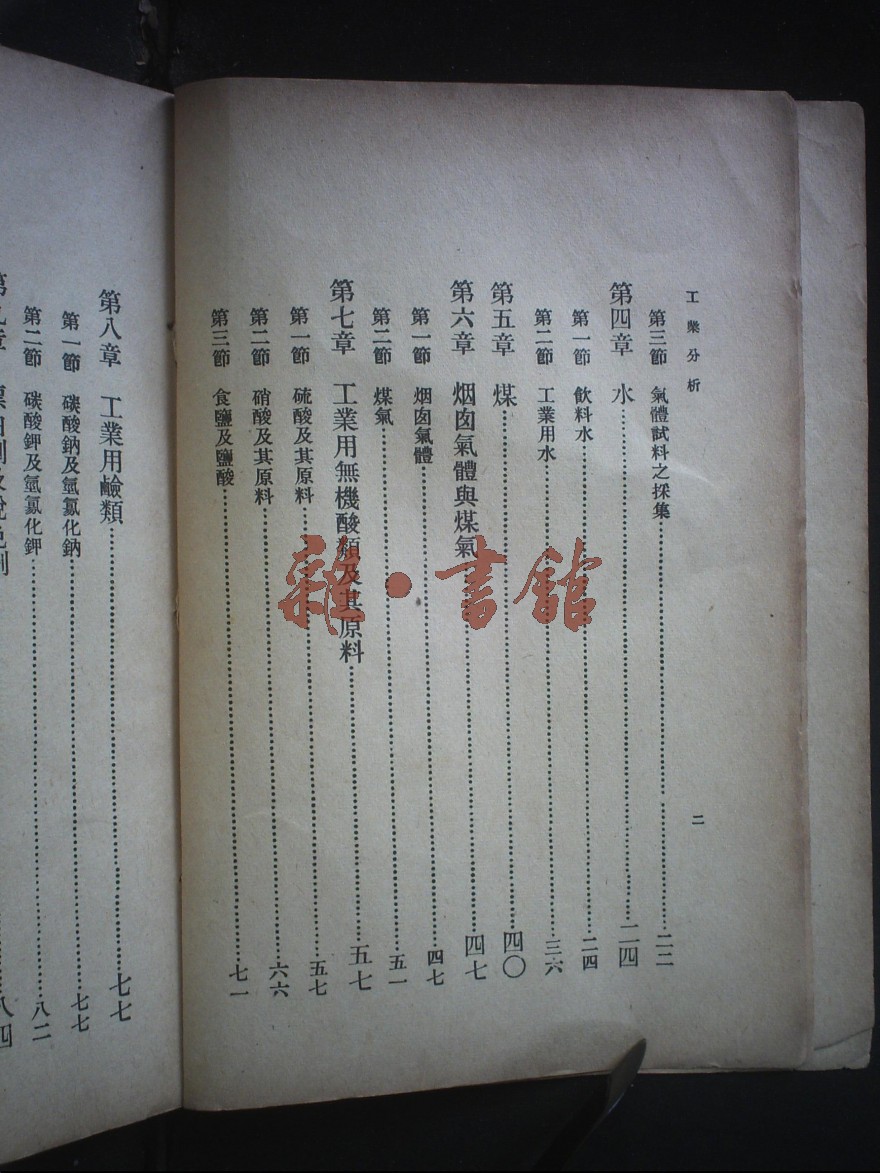 工業分析
二
第三節 氣體試料之採集……二二
第四章 水……二四
第一節 飲料水……二四
第二節 工業用水……三六
第五章 煤……四〇
第六章 烟囱氣體與煤氣……四七
第一節 烟囱氣體……四七
第二節 煤氣……五一
第七章 工業用無機酸類及其原料……五七
第一節 硫酸及其原料……五七
第二節 硝酸及其原料……六六
第三節 食鹽及鹽酸……七一
第八章 工業用鹼類……七七
第一節 碳酸鈉及氫氯化鈉……七七
第二節 碳酸鉀及氫氯化鉀……八二
八四
雜·書館